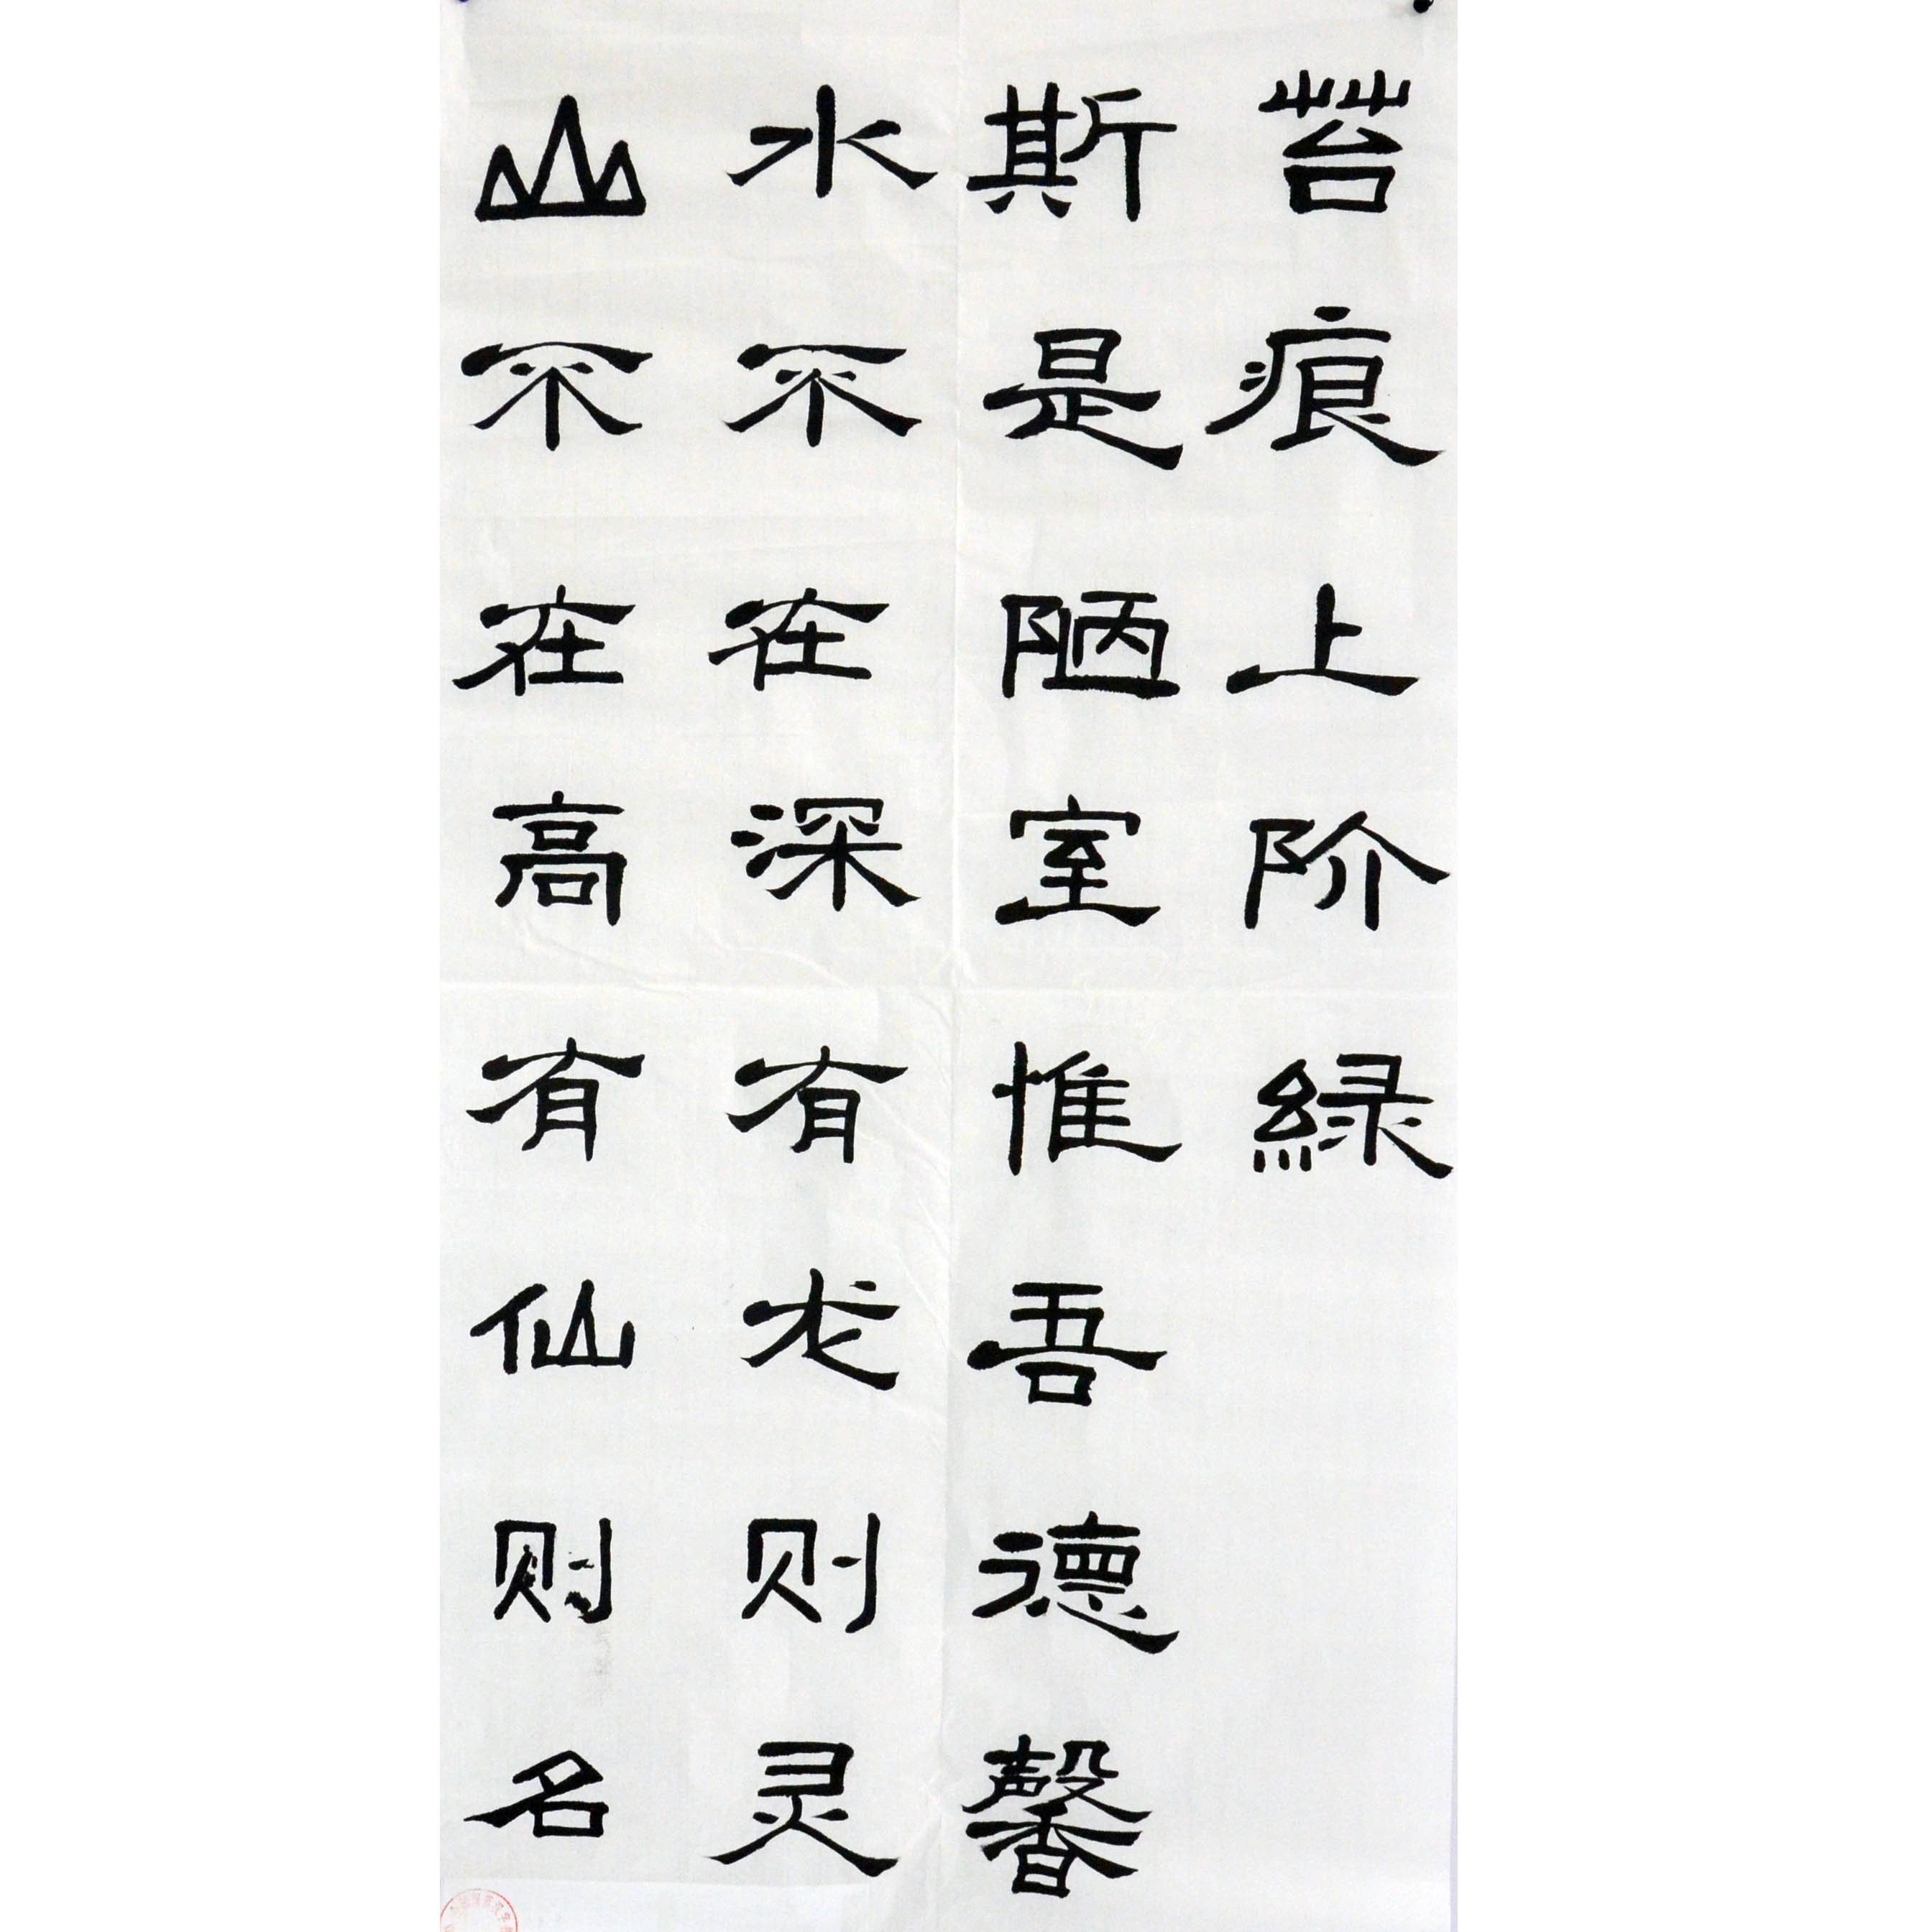 山不在高有仙则名
水不在深有龙则灵
斯是陋室惟吾德馨
苔痕上阶緑